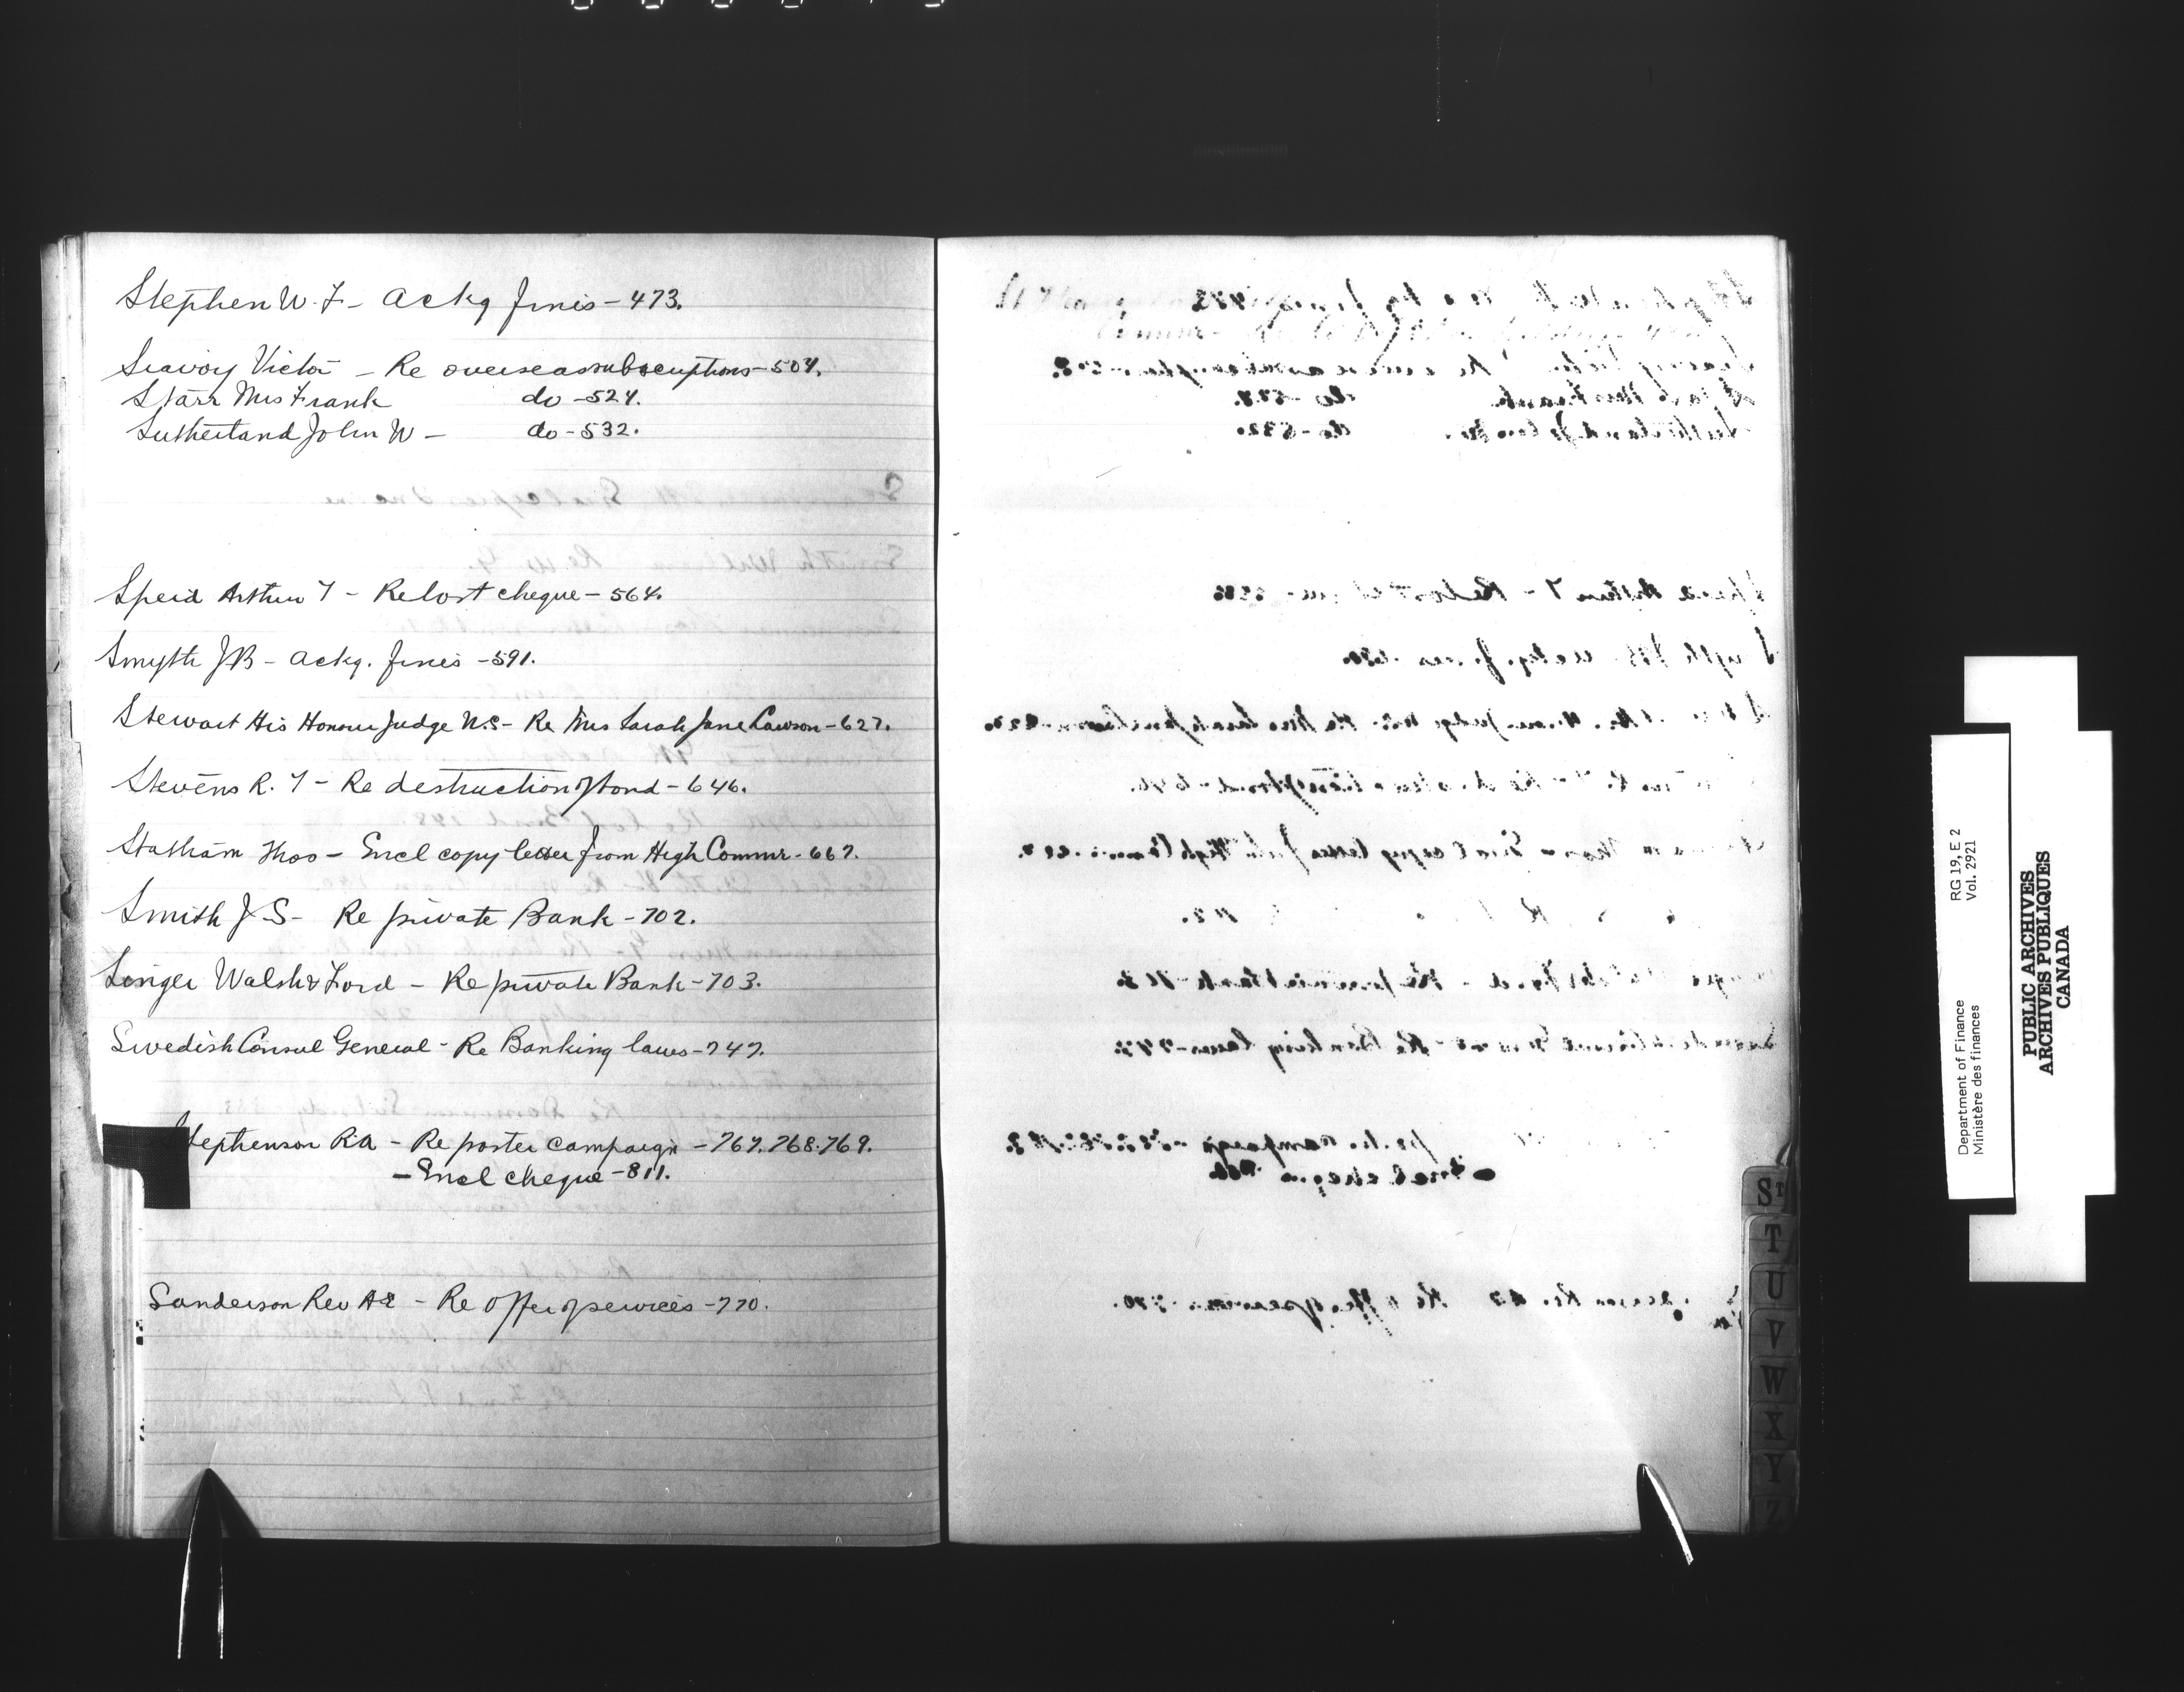 Stephen W. F - Ackg finis - 473.
Seavoy Victor - Re overseas subscriptions - 504.
Starr Mrs Frank do - 524.
Sutherland John W - do - 532.
Speid Arthur T - Re lost cheque - 564.
Smyth J B - Ackg. finis - 591.
Stewart His Honour Judge N.S - Re Mrs Sarah Jane Lawson - 627.
Stevens R. T - Re destruction of bond - 646.
Statham Thos - Encl copy letter from High Commr - 667.
Smith J S - Re private Bank - 702.
Singer Walsh & Ford - Re private Bank - 703.
Swedish Consul General - Re Banking laws - 747.
Stephenson RA - Re poster campaign - 767. 768. 769.
- Encl cheque - 811.
Sanderson Rev AE - Re offer of services - 770.
ST
T
U
V
W
X
Y
Z
Department of Finance RG 19, E 2
Ministère des finances Vol. 2921
PUBLIC ARCHIVES
ARCHIVES PUBLIQUES
CANADA